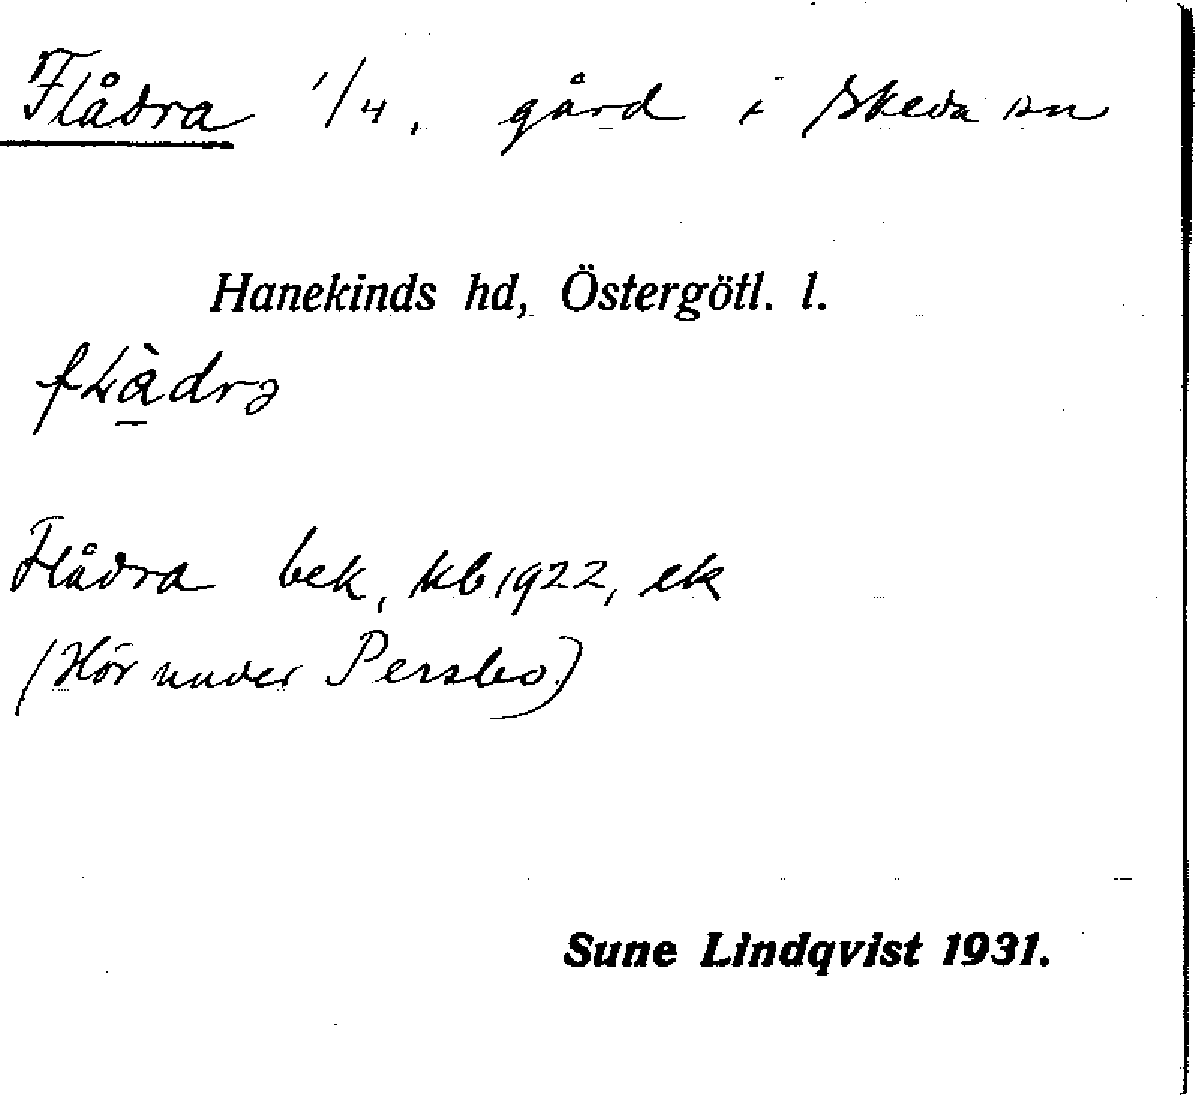 Flådra 1/4, gård i Skeda sn
Hanekinds hd, Östergötl. l.
fLàdrə
Flådra bek, kb 1922, ek
(Hör under Persbo)
Sune Lindqvist 1931.